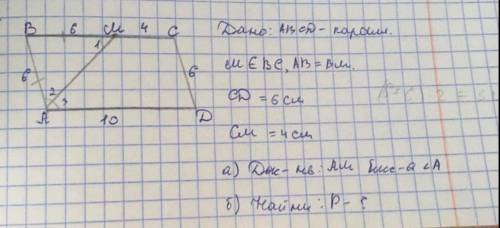 B 6 M 4 C
1
6 6
2
3
A 10 D
Дано: ABCD - паралл.
M ∈ BC, AB = BM.
CD = 6 см
CM = 4 см
а) Док-ть: AM бис-а ∠A
б) Найти: P - ?